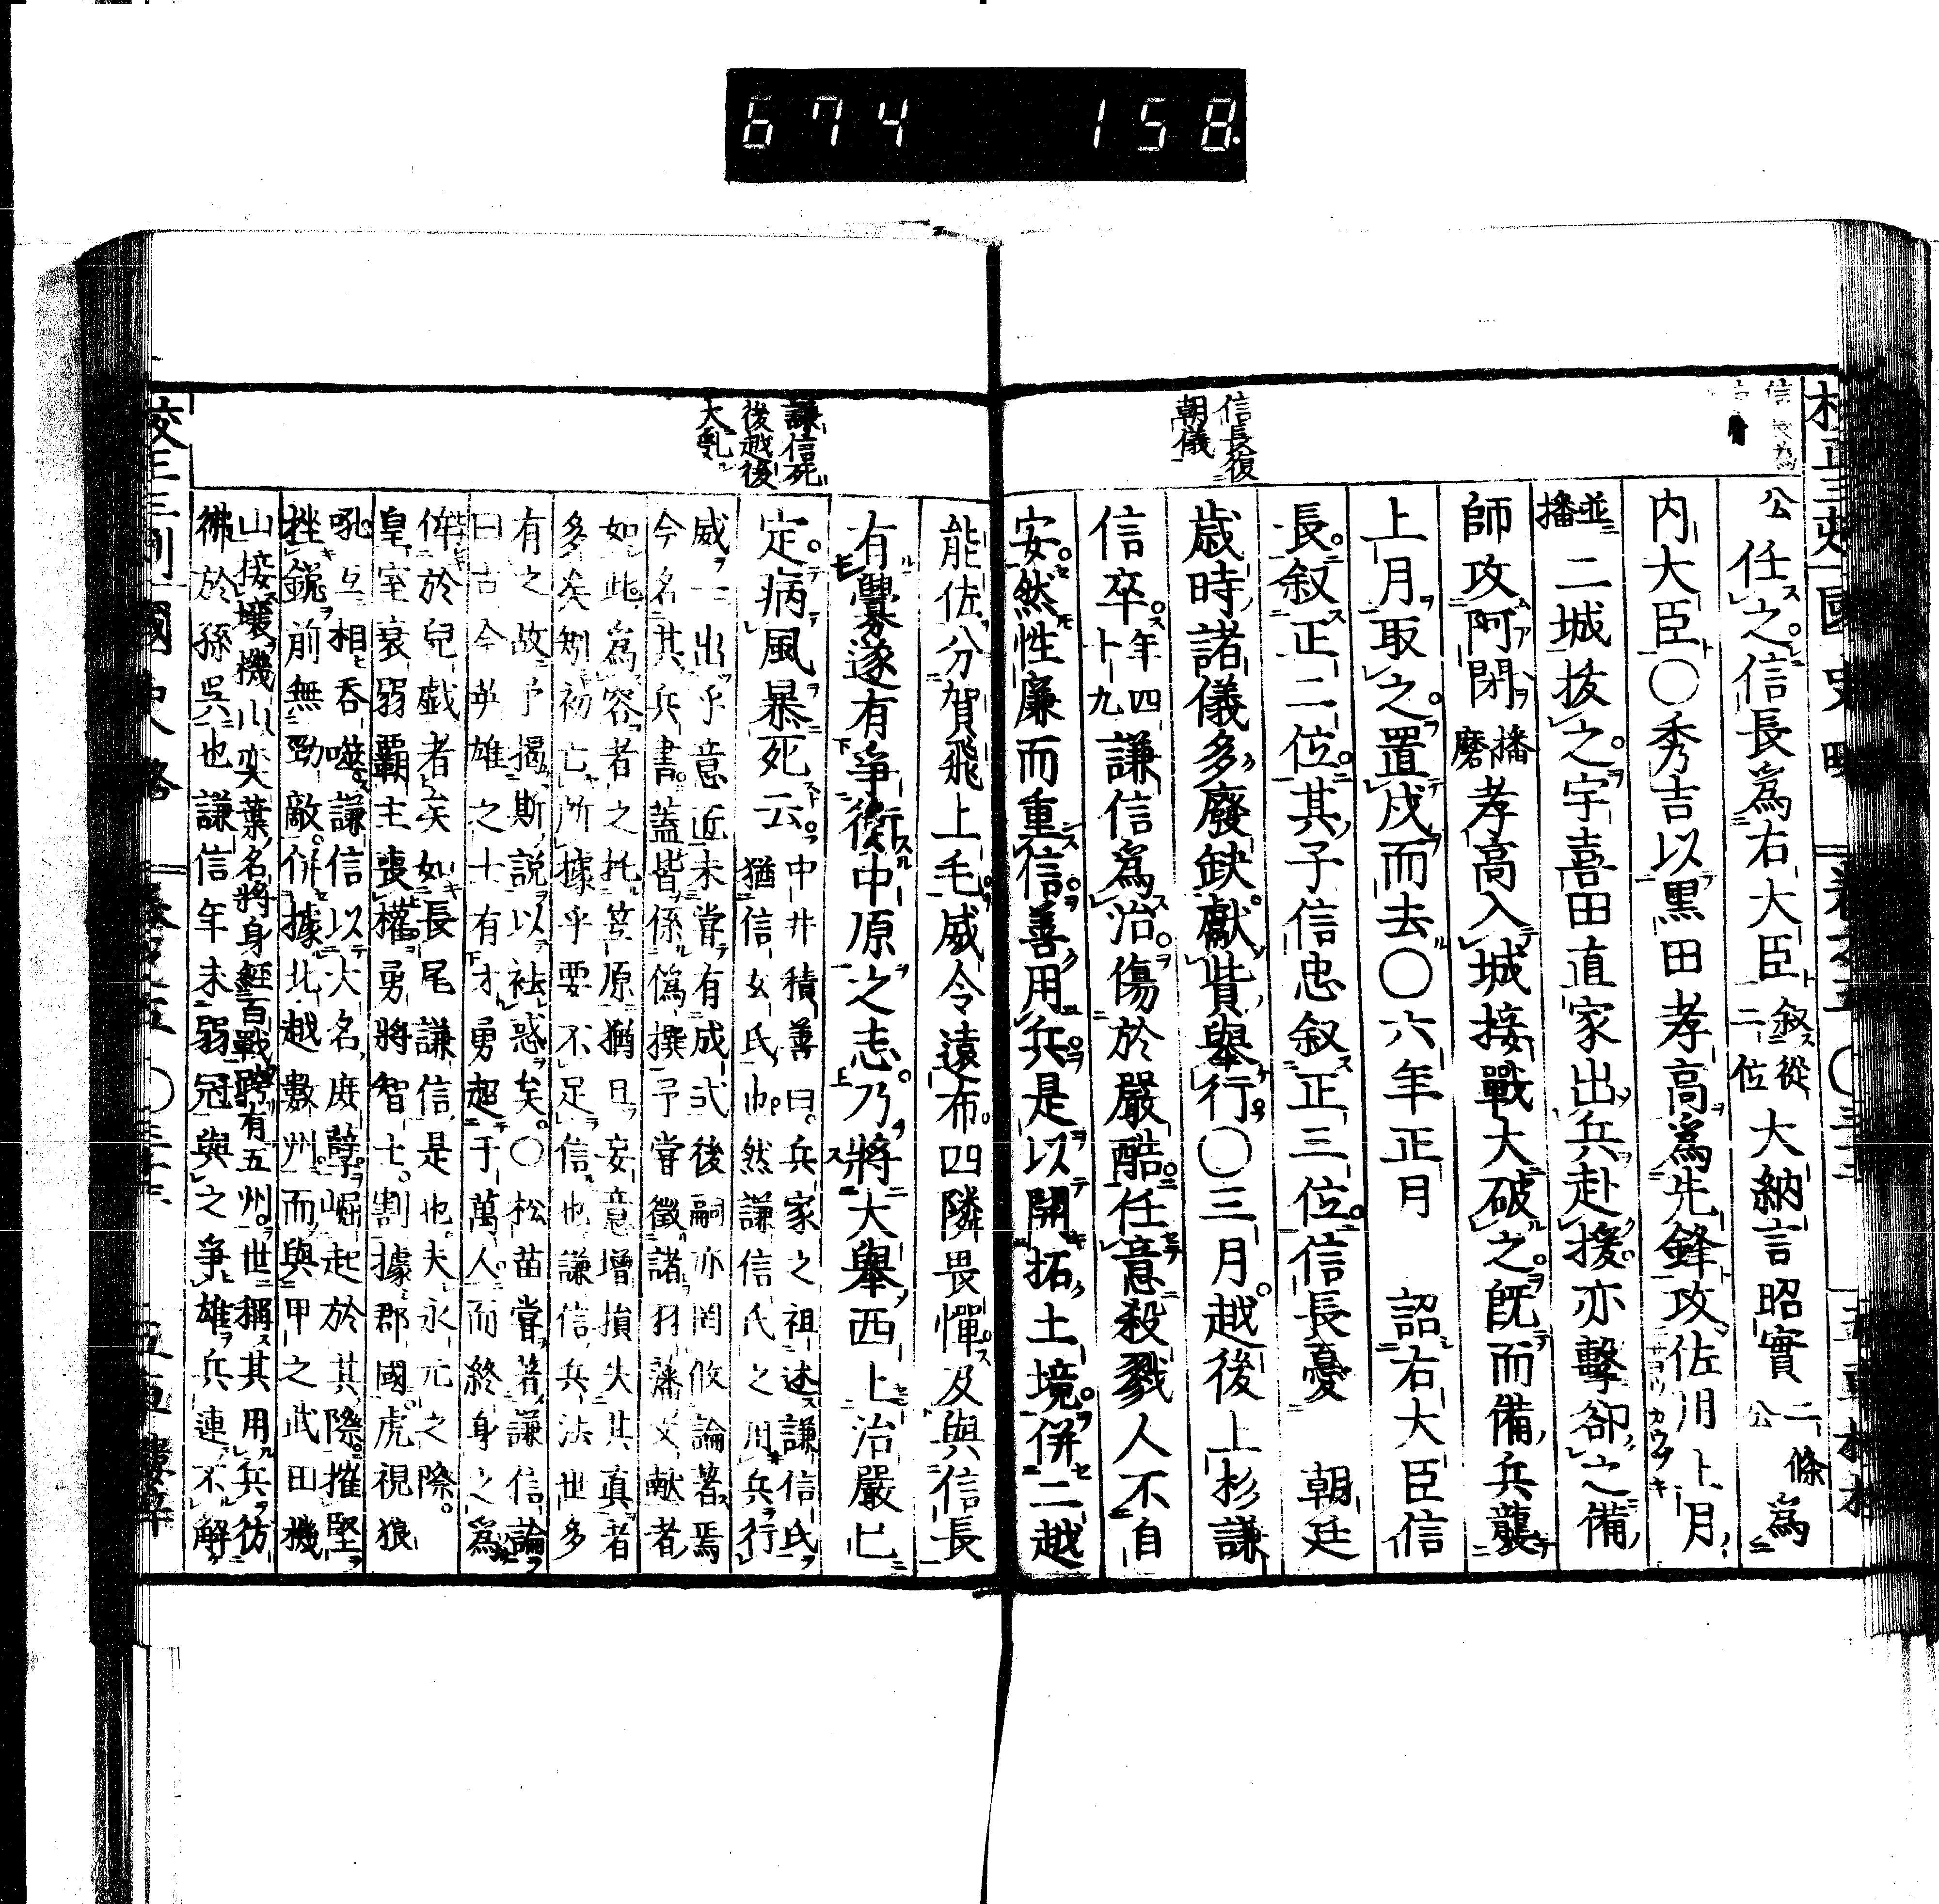 674 158.
信長復
朝儀
公任之信長爲右大臣叙從二位大納言昭實二條公爲
内大臣〇秀吉以黒田孝高爲先鋒攻佐用上月
並播二城抜之宇喜田直家出兵赴援亦擊卻之備
師攻阿閉播磨孝高入城接戰大破之既而備兵襲
上月取之置戍而去〇六年正月 詔右大臣信
長叙正二位其子信忠叙正三位信長憂 朝廷
歳時諸儀多廢缺獻貲舉行〇三月越後上杉謙
信卒年四十九謙信爲治傷於嚴酷任意殺戮人不自
安然性廉而重信善用兵是以開拓土境併二越
謙信死
後越後
大亂
能佐分賀飛上毛威令遠布四隣畏憚及與信長
有釁遂有爭衡中原之志乃將大舉西上治嚴已
定病風暴死云中井積善曰兵家之祖述謙信氏
猶信玄氏也然謙信氏之用兵行
威一出乎意近未嘗有成式後嗣亦罔攸論著焉
今名其兵書蓋皆係僞撰予嘗徵諸羽藩文獻者
如此爲容者之托笠原猶且妄意增損失其真者
多矣矧初亡所據乎要不足信也謙信兵法世多
有之故予揭斯說以袪惑矣〇松苗嘗著謙信論
曰古今英雄之士有才勇起于萬人而終身之爲
侔於兒戯者矣如長尾謙信是也夫永元之際
皇室衰弱覇主喪權勇將智士割據郡國虎視狼
吼互相呑噬謙信以大名庶孽崛起於其際摧堅
挫銳前無勁敵併據北越數州而與甲之武田機
山接壤機山奕葉名將身經百戰跨有五州世稱其用兵彷
彿於孫吳也謙信年未弱冠與之爭雄兵連不解